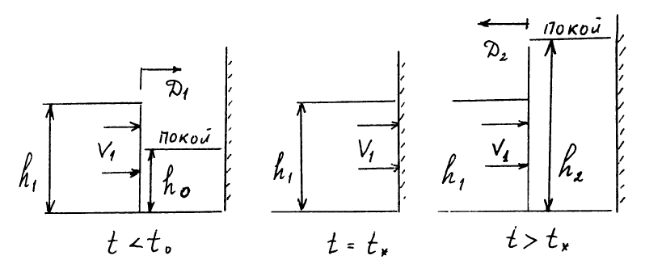 D₁
покой
V₁
h₁
h₀
t < t₀
V₁
h₁
t = t*
D₂
покой
V₁
h₁
h₂
t > t*